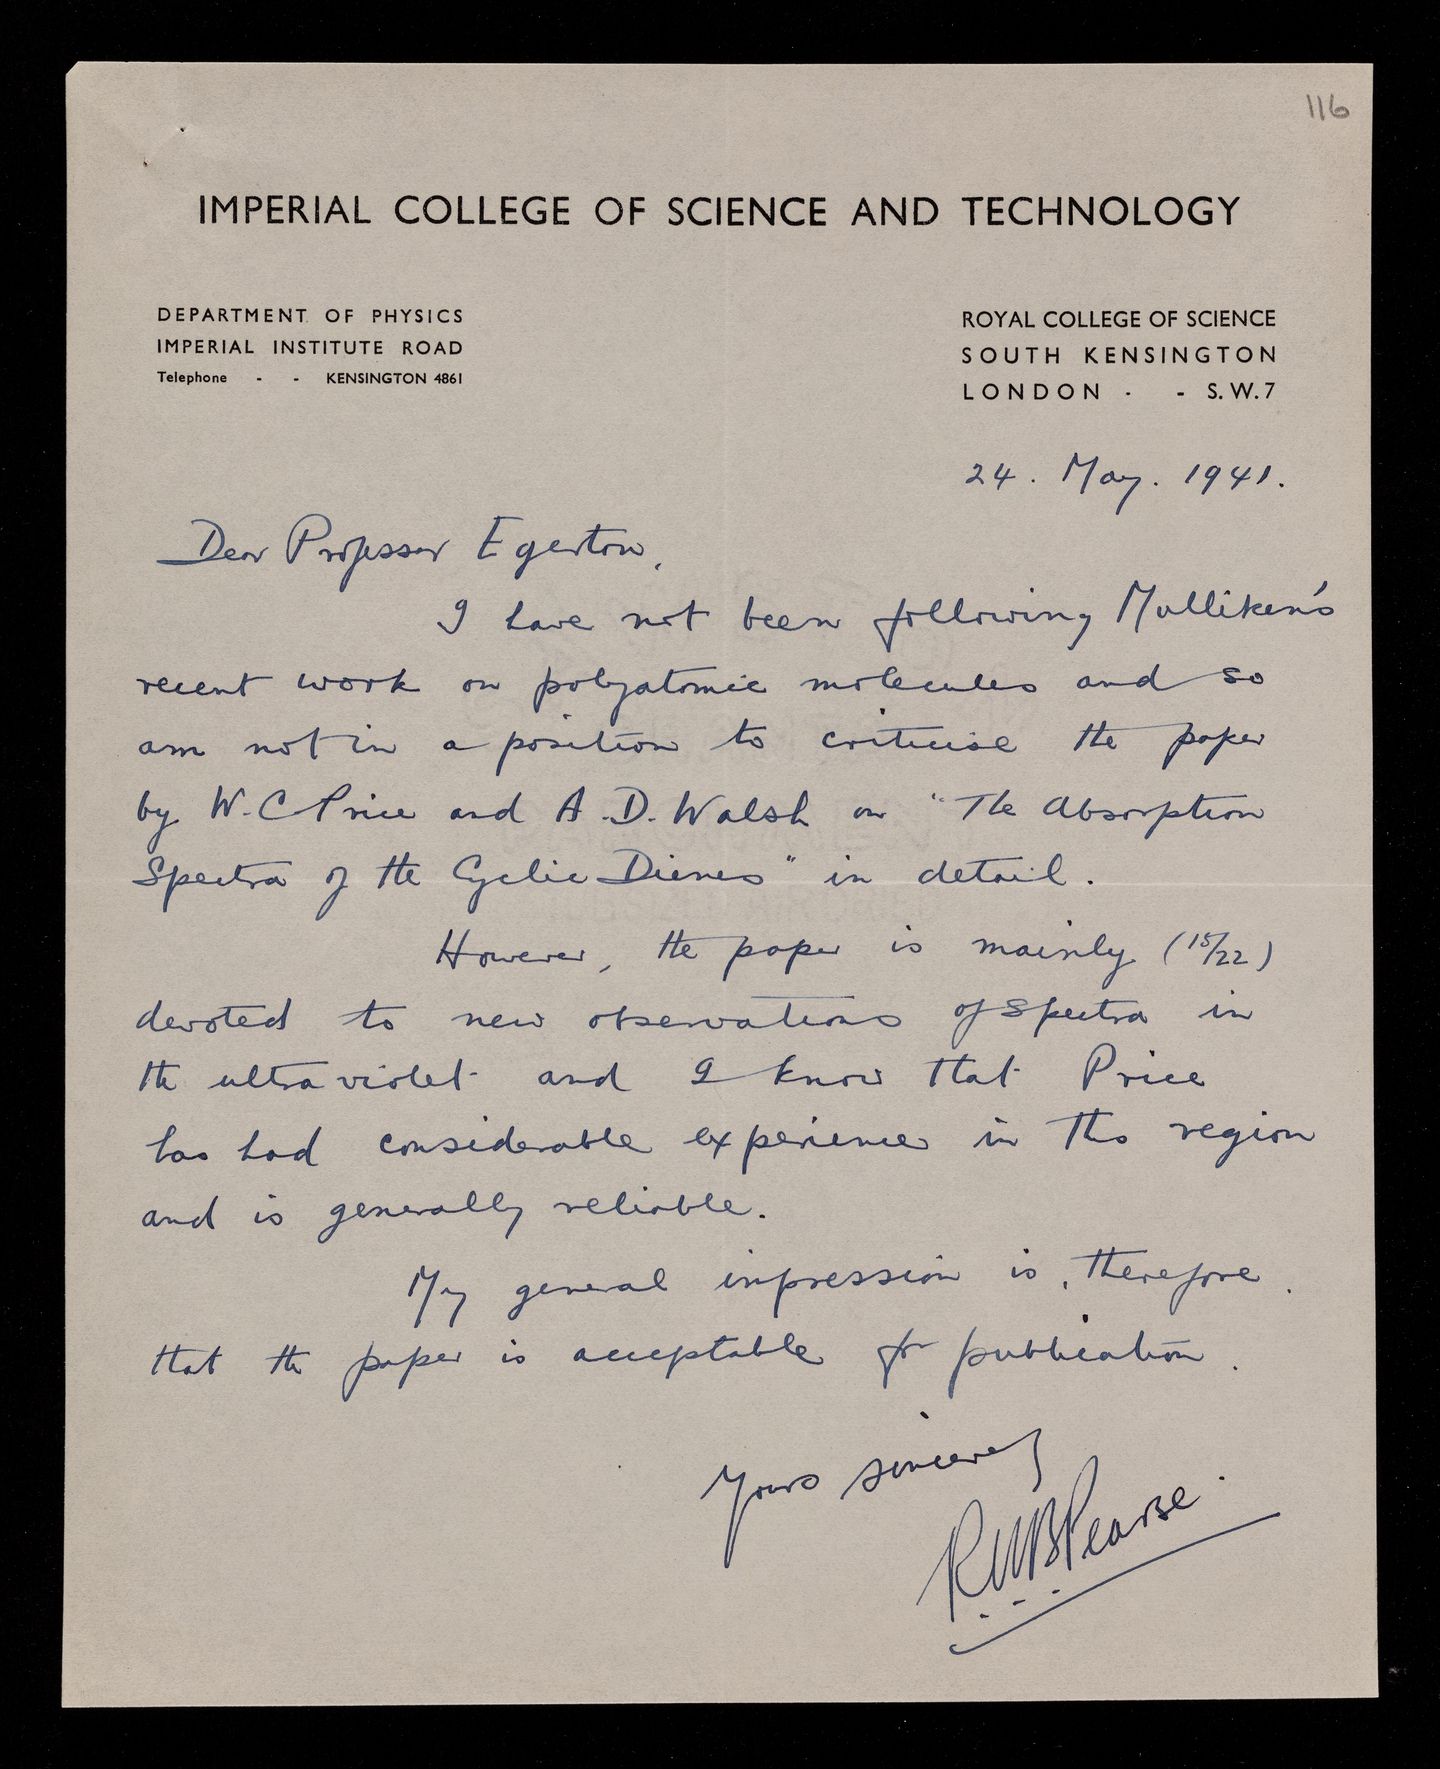 116
IMPERIAL COLLEGE OF SCIENCE AND TECHNOLOGY
DEPARTMENT OF PHYSICS
IMPERIAL INSTITUTE ROAD
Telephone - - KENSINGTON 4861
ROYAL COLLEGE OF SCIENCE
SOUTH KENSINGTON
LONDON - - S.W.7
24. May. 1941.
Dear Professor Egerton,
I have not been following Mulliken's
recent work on polyatomic molecules and so
am not in a position to criticise the paper
by W. C Price and A. D. Walsh on "The Absorption
Spectra of the Cyclic Dienes" in detail.
However, the paper is mainly (15/22)
devoted to new observations of spectra in
the ultraviolet and I know that Price
has had considerable experience in this region
and is generally reliable.
My general impression is, therefore,
that the paper is acceptable for publication.
Yours sincerely
RWBPearse.